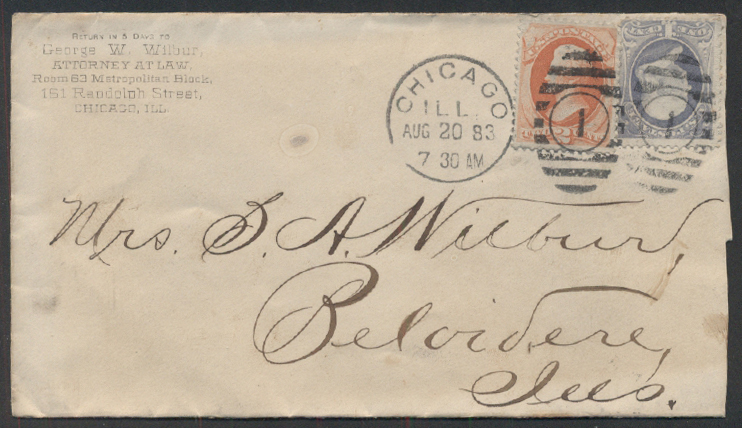 RETURN IN 5 DAYS TO
George W. Wilbur,
ATTORNEY AT LAW,
Room 63 Metropolitan Block,
161 Randolph Street,
CHICAGO, ILL.
CHICAGO
ILL.
AUG 20 83
7 30 AM
1
1
Mrs. S. A. Wilbur,
Belvidere,
Ills.